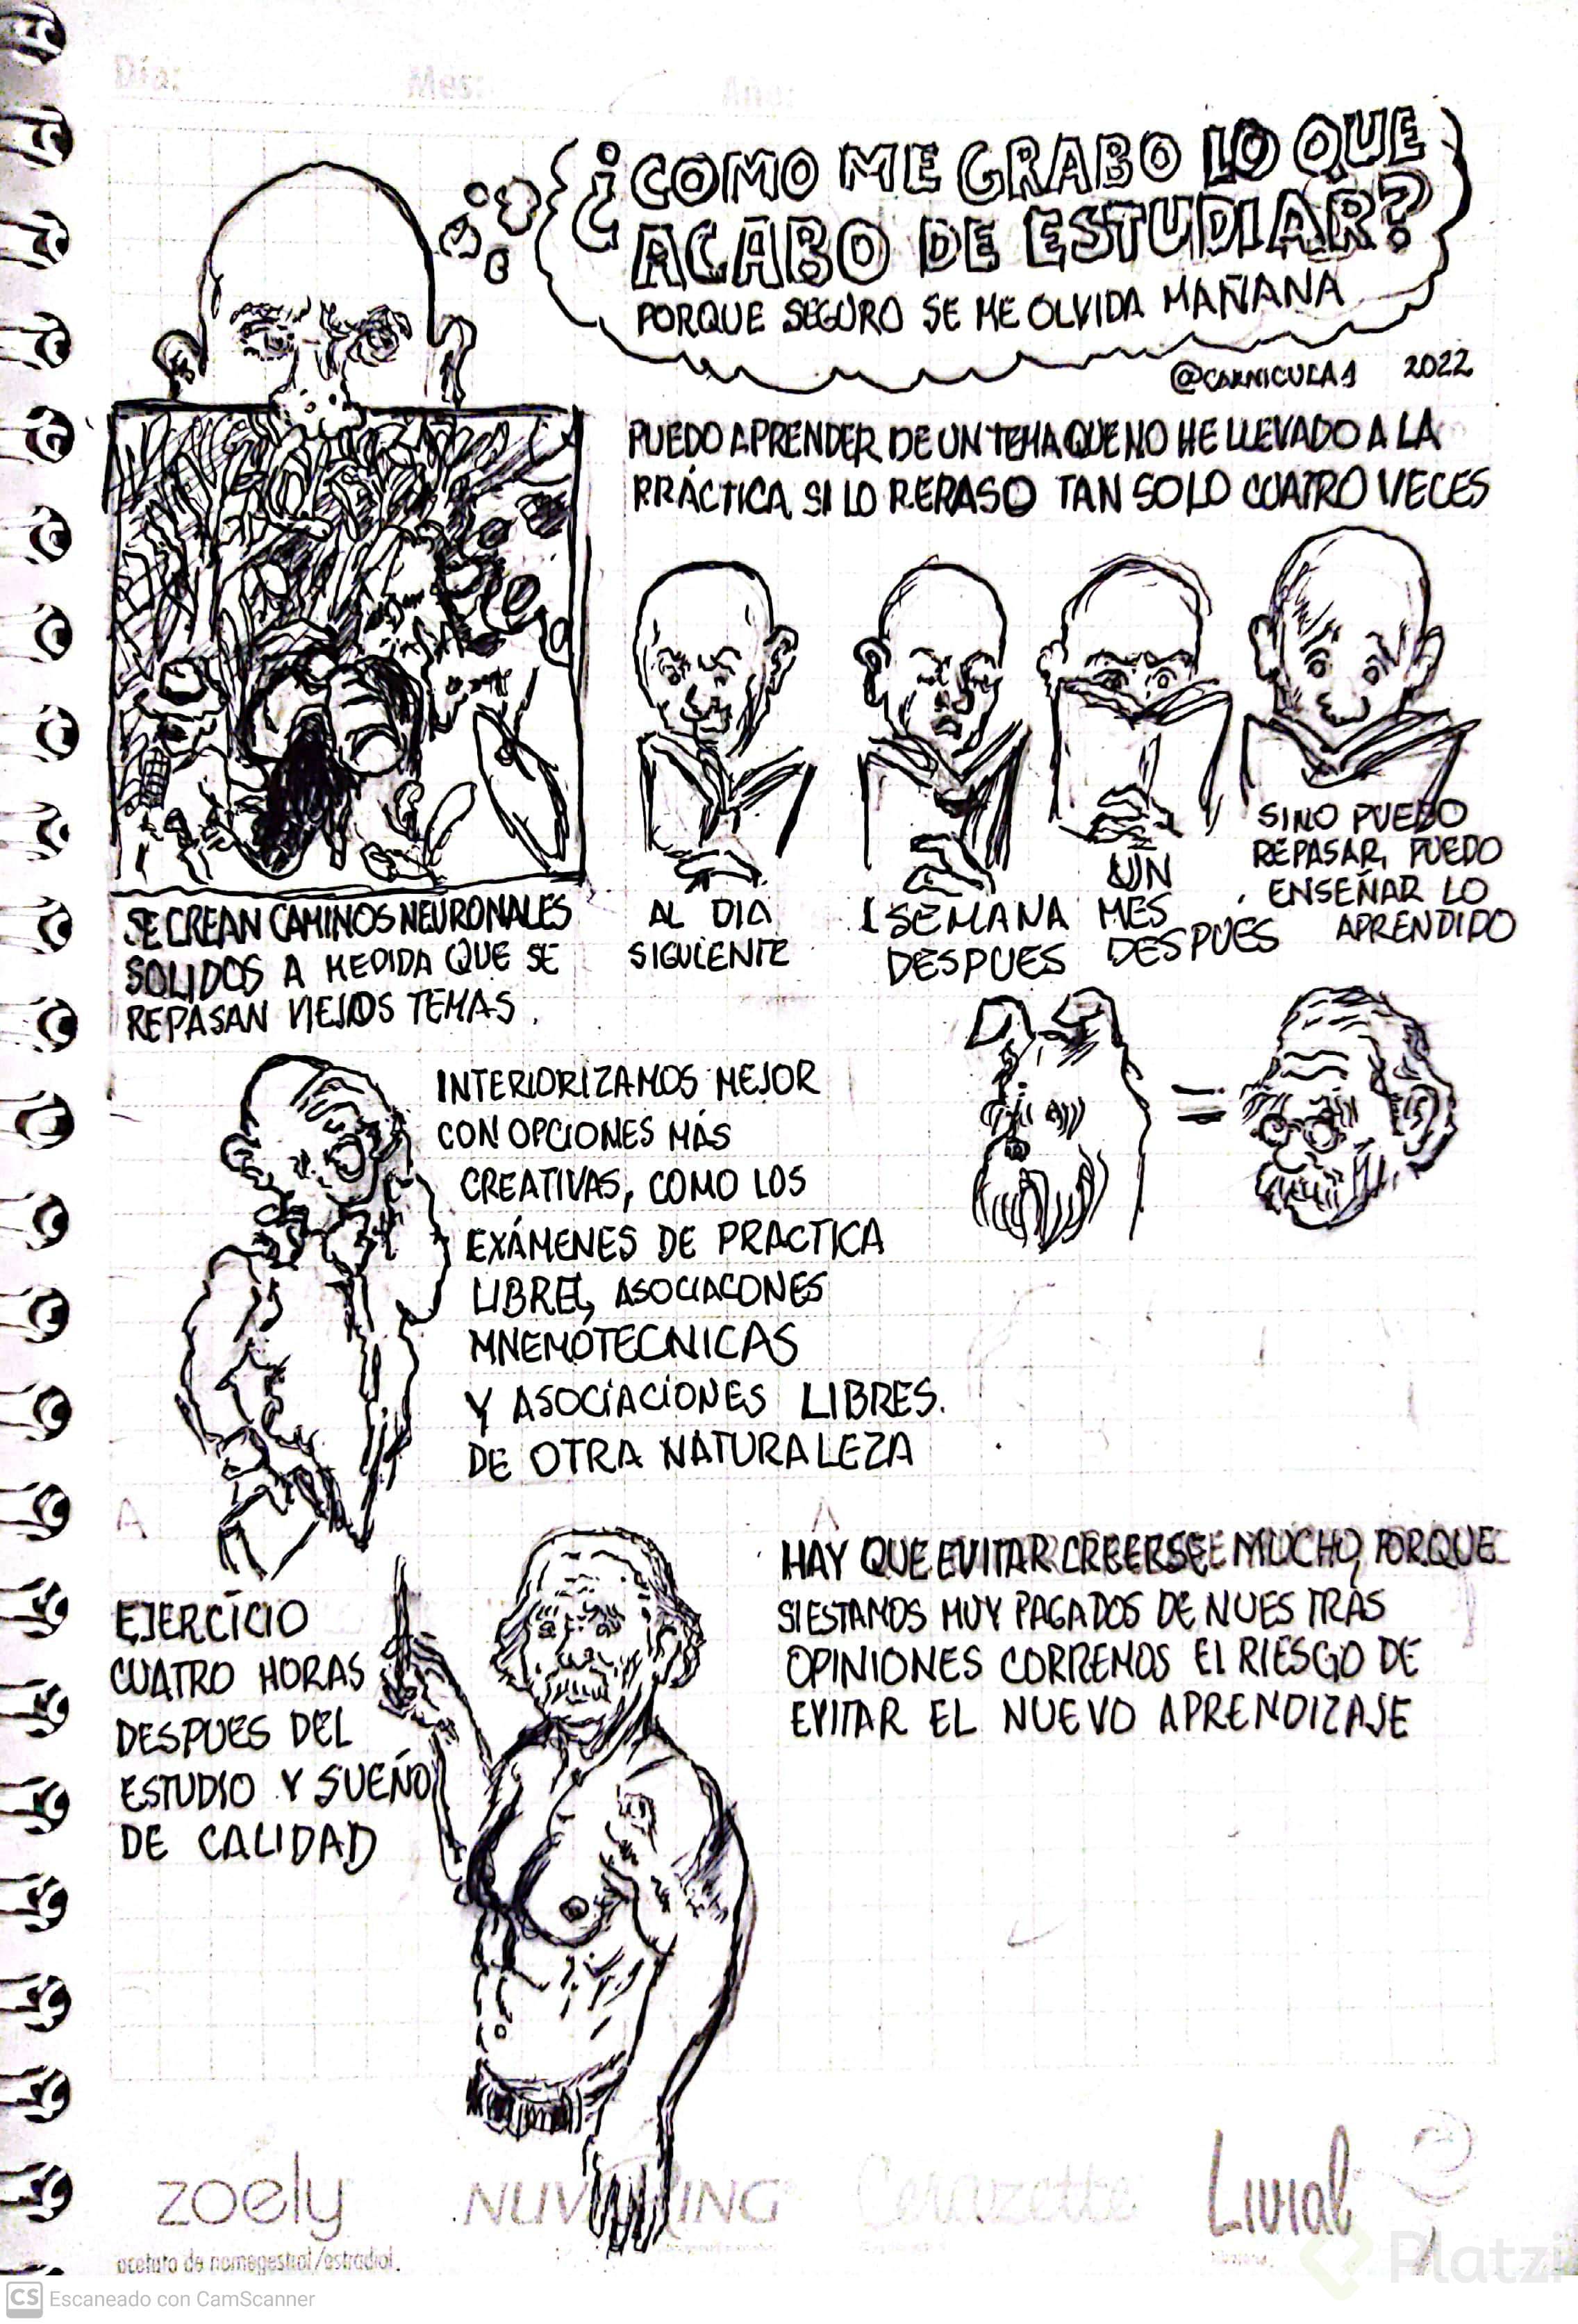 Día:
Mes:
Año:
¿COMO ME GRABO LO QUE
ACABO DE ESTUDIAR?
PORQUE SEGURO SE ME OLVIDA MAÑANA
@CARNICULA1 2022
PUEDO APRENDER DE UN TEMA QUE NO HE LLEVADO A LA
PRÁCTICA SI LO REPASO TAN SOLO CUATRO VECES
AL DIA
SIGUIENTE
1 SEMANA
DESPUES
UN
MES
DESPUES
SINO PUEDO
REPASAR, PUEDO
ENSEÑAR LO
APRENDIDO
SE CREAN CAMINOS NEURONALES
SOLIDOS A MEDIDA QUE SE
REPASAN VIEJOS TEMAS.
=
INTERIORIZAMOS MEJOR
CON OPCIONES MÁS
CREATIVAS, COMO LOS
EXÁMENES DE PRACTICA
LIBRE, ASOCIACONES
MNEMÓTECNICAS
Y ASOCIACIONES LIBRES.
DE OTRA NATURALEZA
EJERCÍCIO
CUATRO HORAS
DESPUES DEL
ESTUDIO Y SUEÑO
DE CALIDAD
HAY QUE EVITAR CREERSE MUCHO, PORQUE
SI ESTAMOS MUY PAGADOS DE NUESTRAS
OPINIONES CORREMOS EL RIESGO DE
EVITAR EL NUEVO APRENDIZAJE
zoely
acetato de nomegestrol/estradiol.
Cerazette
Livial
Platzi
CS Escaneado con CamScanner